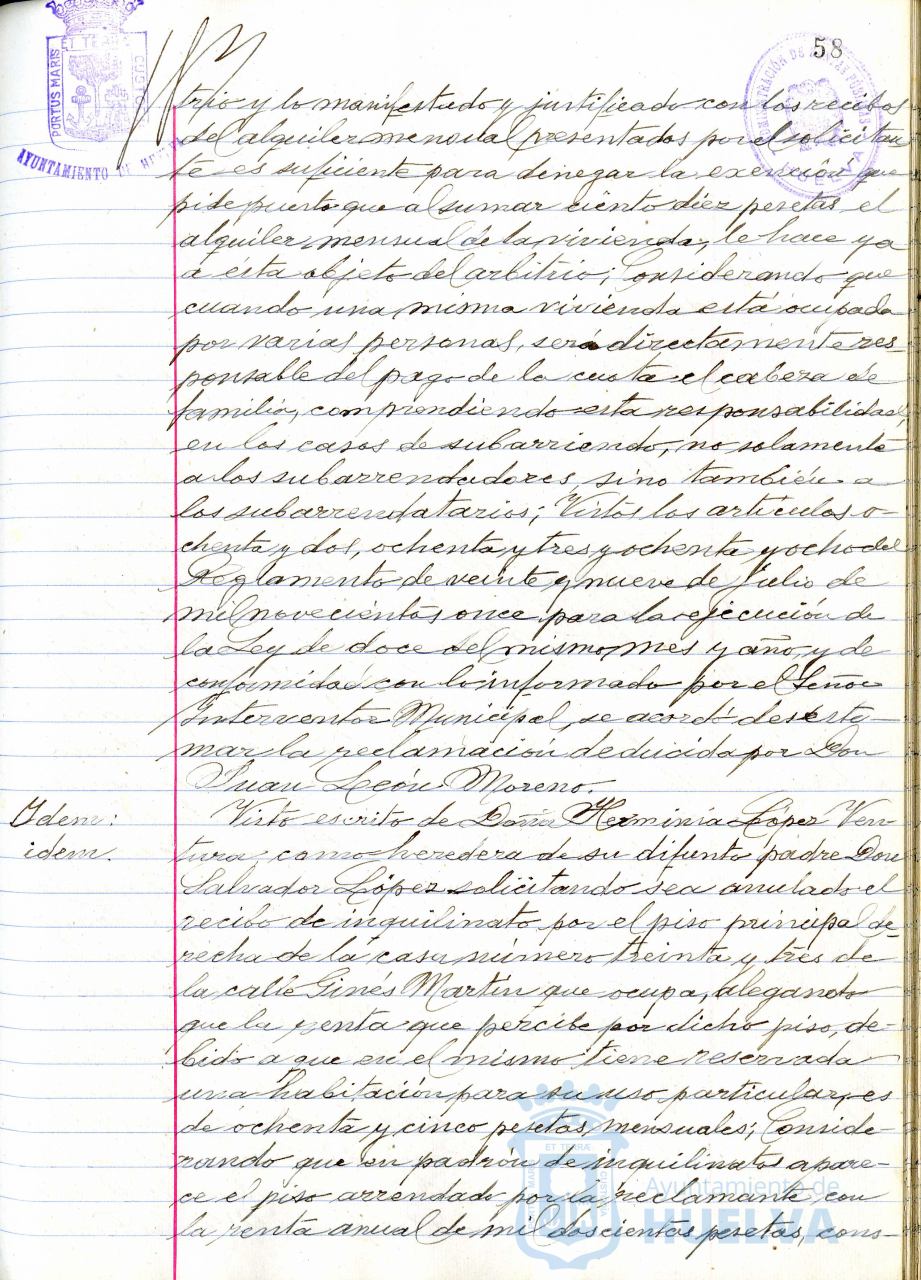 58
PORTUS MARIS ET TERRÆ CUSTODIA
AYUNTAMIENTO DE HUELVA
trio y lo manifestado y justificado con los recibos
del alquiler mensual presentados por el solicitan-
te es suficiente para denegar la exención que
pide puesto que al sumar ciento diez pesetas el
alquiler mensual de la vivienda, le hace ya
a ésta objeto del arbitrio; Considerando que
cuando una misma vivienda está ocupada
por varias personas, será directamente res-
ponsable del pago de la cuota el cabeza de
familia, comprendiendo esta responsabilidad,
en los casos de subarriendo, no solamente
a los subarrendadores, sino también a
los subarrendatarios; Vistos los artículos o-
chenta y dos, ochenta y tres y ochenta y ocho del
Reglamento de veinte y nueve de julio de
mil novecientos once para la ejecución de
la Ley de doce del mismo mes y año, y de
conformidad con lo informado por el Señor
Interventor Municipal, se acordó desesti-
mar la reclamación deducida por Don
Juan León Moreno.
Idem:
idem.
Visto escrito de Doña Herminia López Ven-
tura, como heredera de su difunto padre Don
Salvador López solicitando sea anulado el
recibo de inquilinato por el piso principal de-
recha de la casa número treinta y tres de
la calle Ginés Martín que ocupa, alegando
que la renta que percibe por dicho piso, de-
bido a que en el mismo tiene reservada
una habitación para su uso particular, es
de ochenta y cinco pesetas mensuales; Conside-
rando que en padrón de inquilinatos apare-
ce el piso arrendado por la reclamante con
la renta anual de mil doscientas pesetas, cons-
Ayuntamiento de
HUELVA